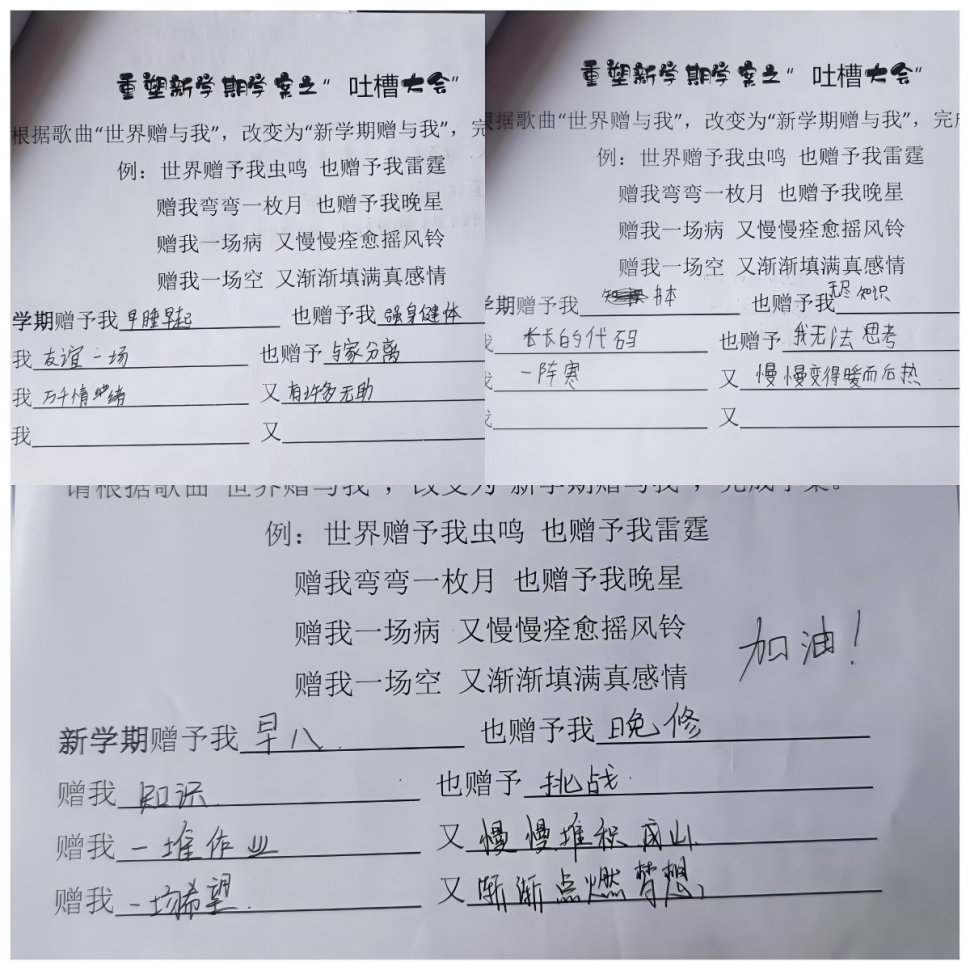 重塑新学期学案之“吐槽大会”
根据歌曲“世界赠与我”，改变为“新学期赠与我”，完
例：世界赠予我虫鸣 也赠予我雷霆
赠我弯弯一枚月 也赠予我晚星
赠我一场病 又慢慢痊愈摇风铃
赠我一场空 又渐渐填满真感情
学期赠予我 早睡早起 也赠予我 强身健体
我 友谊一场 也赠予 与家分离
我 万千情绪 又 有许多无助
我 又
重塑新学期学案之“吐槽大会”
根据歌曲“世界赠与我”，改变为“新学期赠与我”，完成
例：世界赠予我虫鸣 也赠予我雷霆
赠我弯弯一枚月 也赠予我晚星
赠我一场病 又慢慢痊愈摇风铃
赠我一场空 又渐渐填满真感情
学期赠予我 书本 也赠予我 无尽知识
长长的代码 也赠予 我无法思考
一阵寒 又 慢慢变得暖而后热
我 又
请根据歌曲“世界赠与我”，改变为“新学期赠与我”，完成学案。
例：世界赠予我虫鸣 也赠予我雷霆
赠我弯弯一枚月 也赠予我晚星
赠我一场病 又慢慢痊愈摇风铃
赠我一场空 又渐渐填满真感情
加油！
新学期赠予我 早八. 也赠予我 晚修
赠我 知识 也赠予 挑战.
赠我 一堆作业 又 慢慢堆积成山.
赠我 一场希望. 又 渐渐点燃梦想.